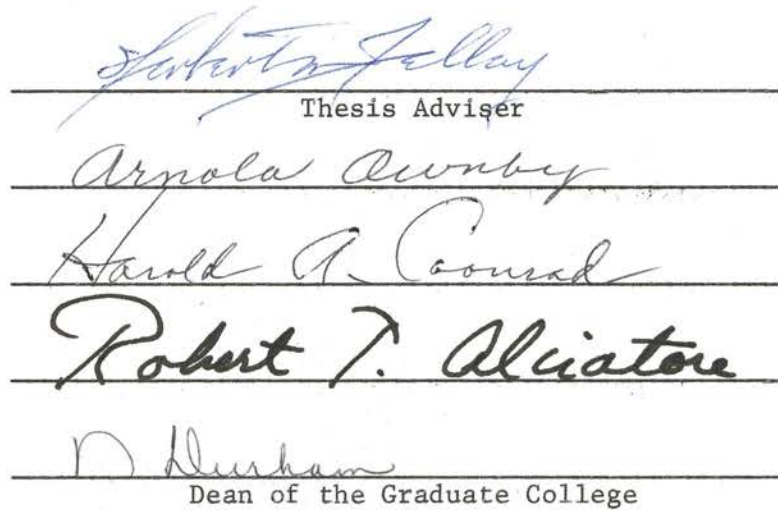 Herbert M Jelley
Thesis Adviser
Arnola Ownby
Harold A. Coonrad
Robert T. Alciatore
N Durham
Dean of the Graduate College